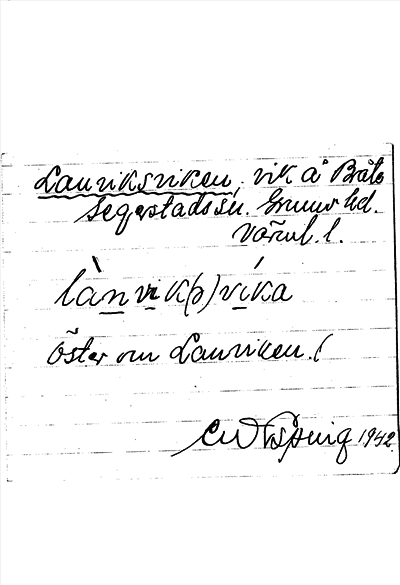 Lanviksviken, vik å Bråts
Segerstads sn. Grums hd.
Värml. l.
lànvik(s)víka
Öster om Lanviken. (
1942.